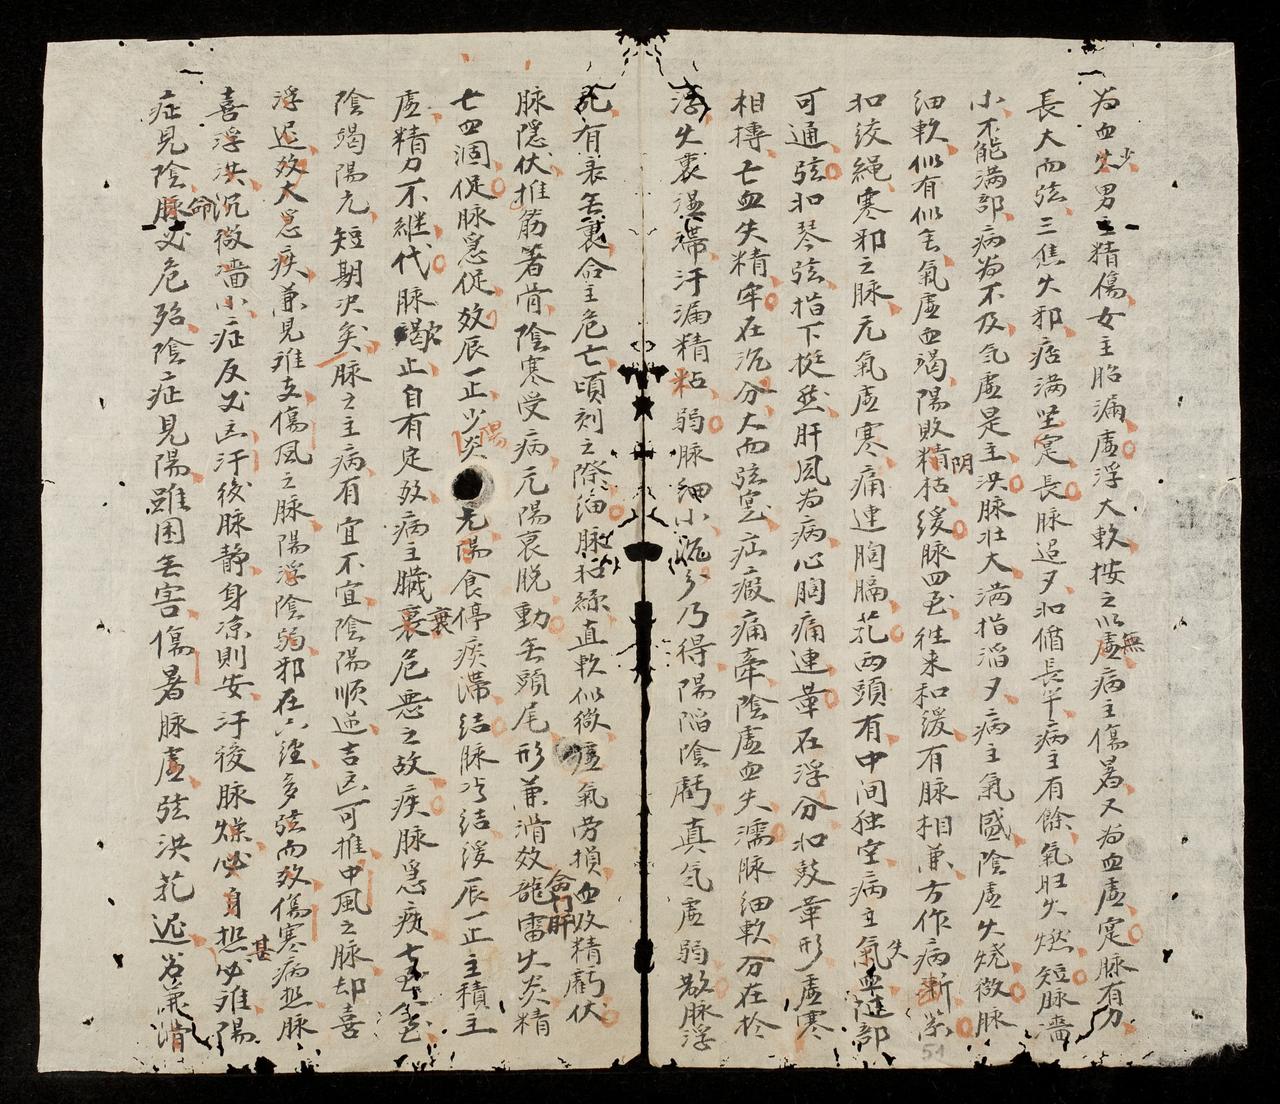 為血少男主精傷女主胎漏虛浮大軟按之似無病主傷暑又為血虛寔脉有力
長大而弦三焦火邪痞滿坚寔長脉迢夕如循長竿病主有餘氣旺火燃短脉濇
小不能滿部病為不及气虛是主洪脉壮大滿指滔夕病主氣盛陰虛火燒微脉
細軟似有似無氣虛血竭陽敗精枯緩脉四至往来和緩有脉相兼方作病斷
如絞繩寒邪之脉元氣虛寒痛連胸膈芤兩頭有中间独空病主失血
可通弦如琴弦指下挺然肝風為病心胸痛連革在浮分如鼓革形虛寒
相摶亡血失精牢在沉分大而弦寔疝瘕痛牽陰虛血失濡脉細軟分在於
浮火裏湿滯汗漏精粘弱脉細小沉分乃得陽陷陰虧真气虛弱散脉浮
乱有表無裏命主危亡頃刻之際脉如絲直軟似微虛氣劳損血改精虧伏
脉隱伏推筋著骨陰寒受病元陽衰脱動無頭尾形兼滑数龍雷火炎精
亡血涸促脉急促数辰一止火炎元陽食停痰滯結脉冷結緩辰一止主積主
虛精力不継代脉歇止自有定数病主臟衰危惡之故疾脉急疾七至
陰竭陽亢短期决矣脉之主病有宜不宜陰陽順逆吉凶可推中風之脉却喜
浮迟数大急疾兼見难支傷風之脉陽浮陰弱邪在六経多弦而数傷寒病热脉
喜浮洪沉微濇小症反必凶汗後脉静身凉則安汗後脉燥身热甚必难陽
症見陰脉命必危殆陰症見陽雖困無害傷暑脉虛弦洪芤迟若兼滑